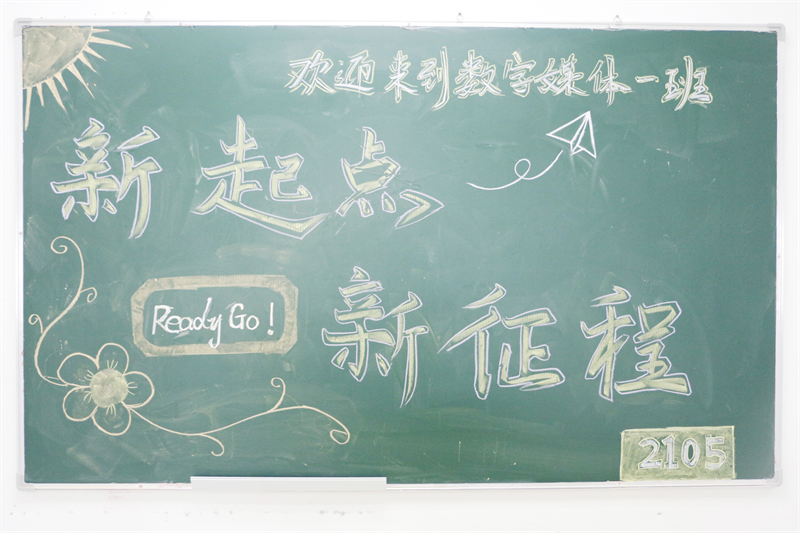 欢迎来到数字媒体一班
新起点
Ready Go!
新征程
2105